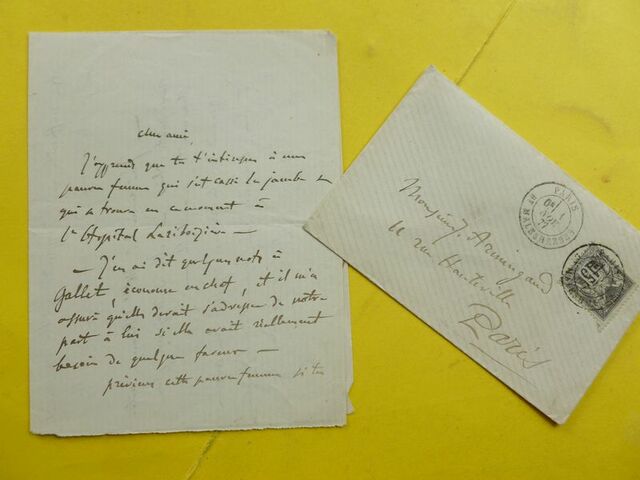 Cher ami,
J'apprends que tu t'intéresses à une
pauvre femme qui s'est cassé la jambe et
qui se trouve en ce moment à
l'Hopital Lariboisière —
— J'en ai dit quelques mots à
Gallet, économe en chef, et il m'a
assuré qu'elle devait s'adresser de notre
part à lui si elle avait réellement
besoin de quelque faveur —
préviens cette pauvre femme si tu
Monsieur Armingaud
11 rue Hauteville
Paris
PARIS
1
BD MALESHERBES